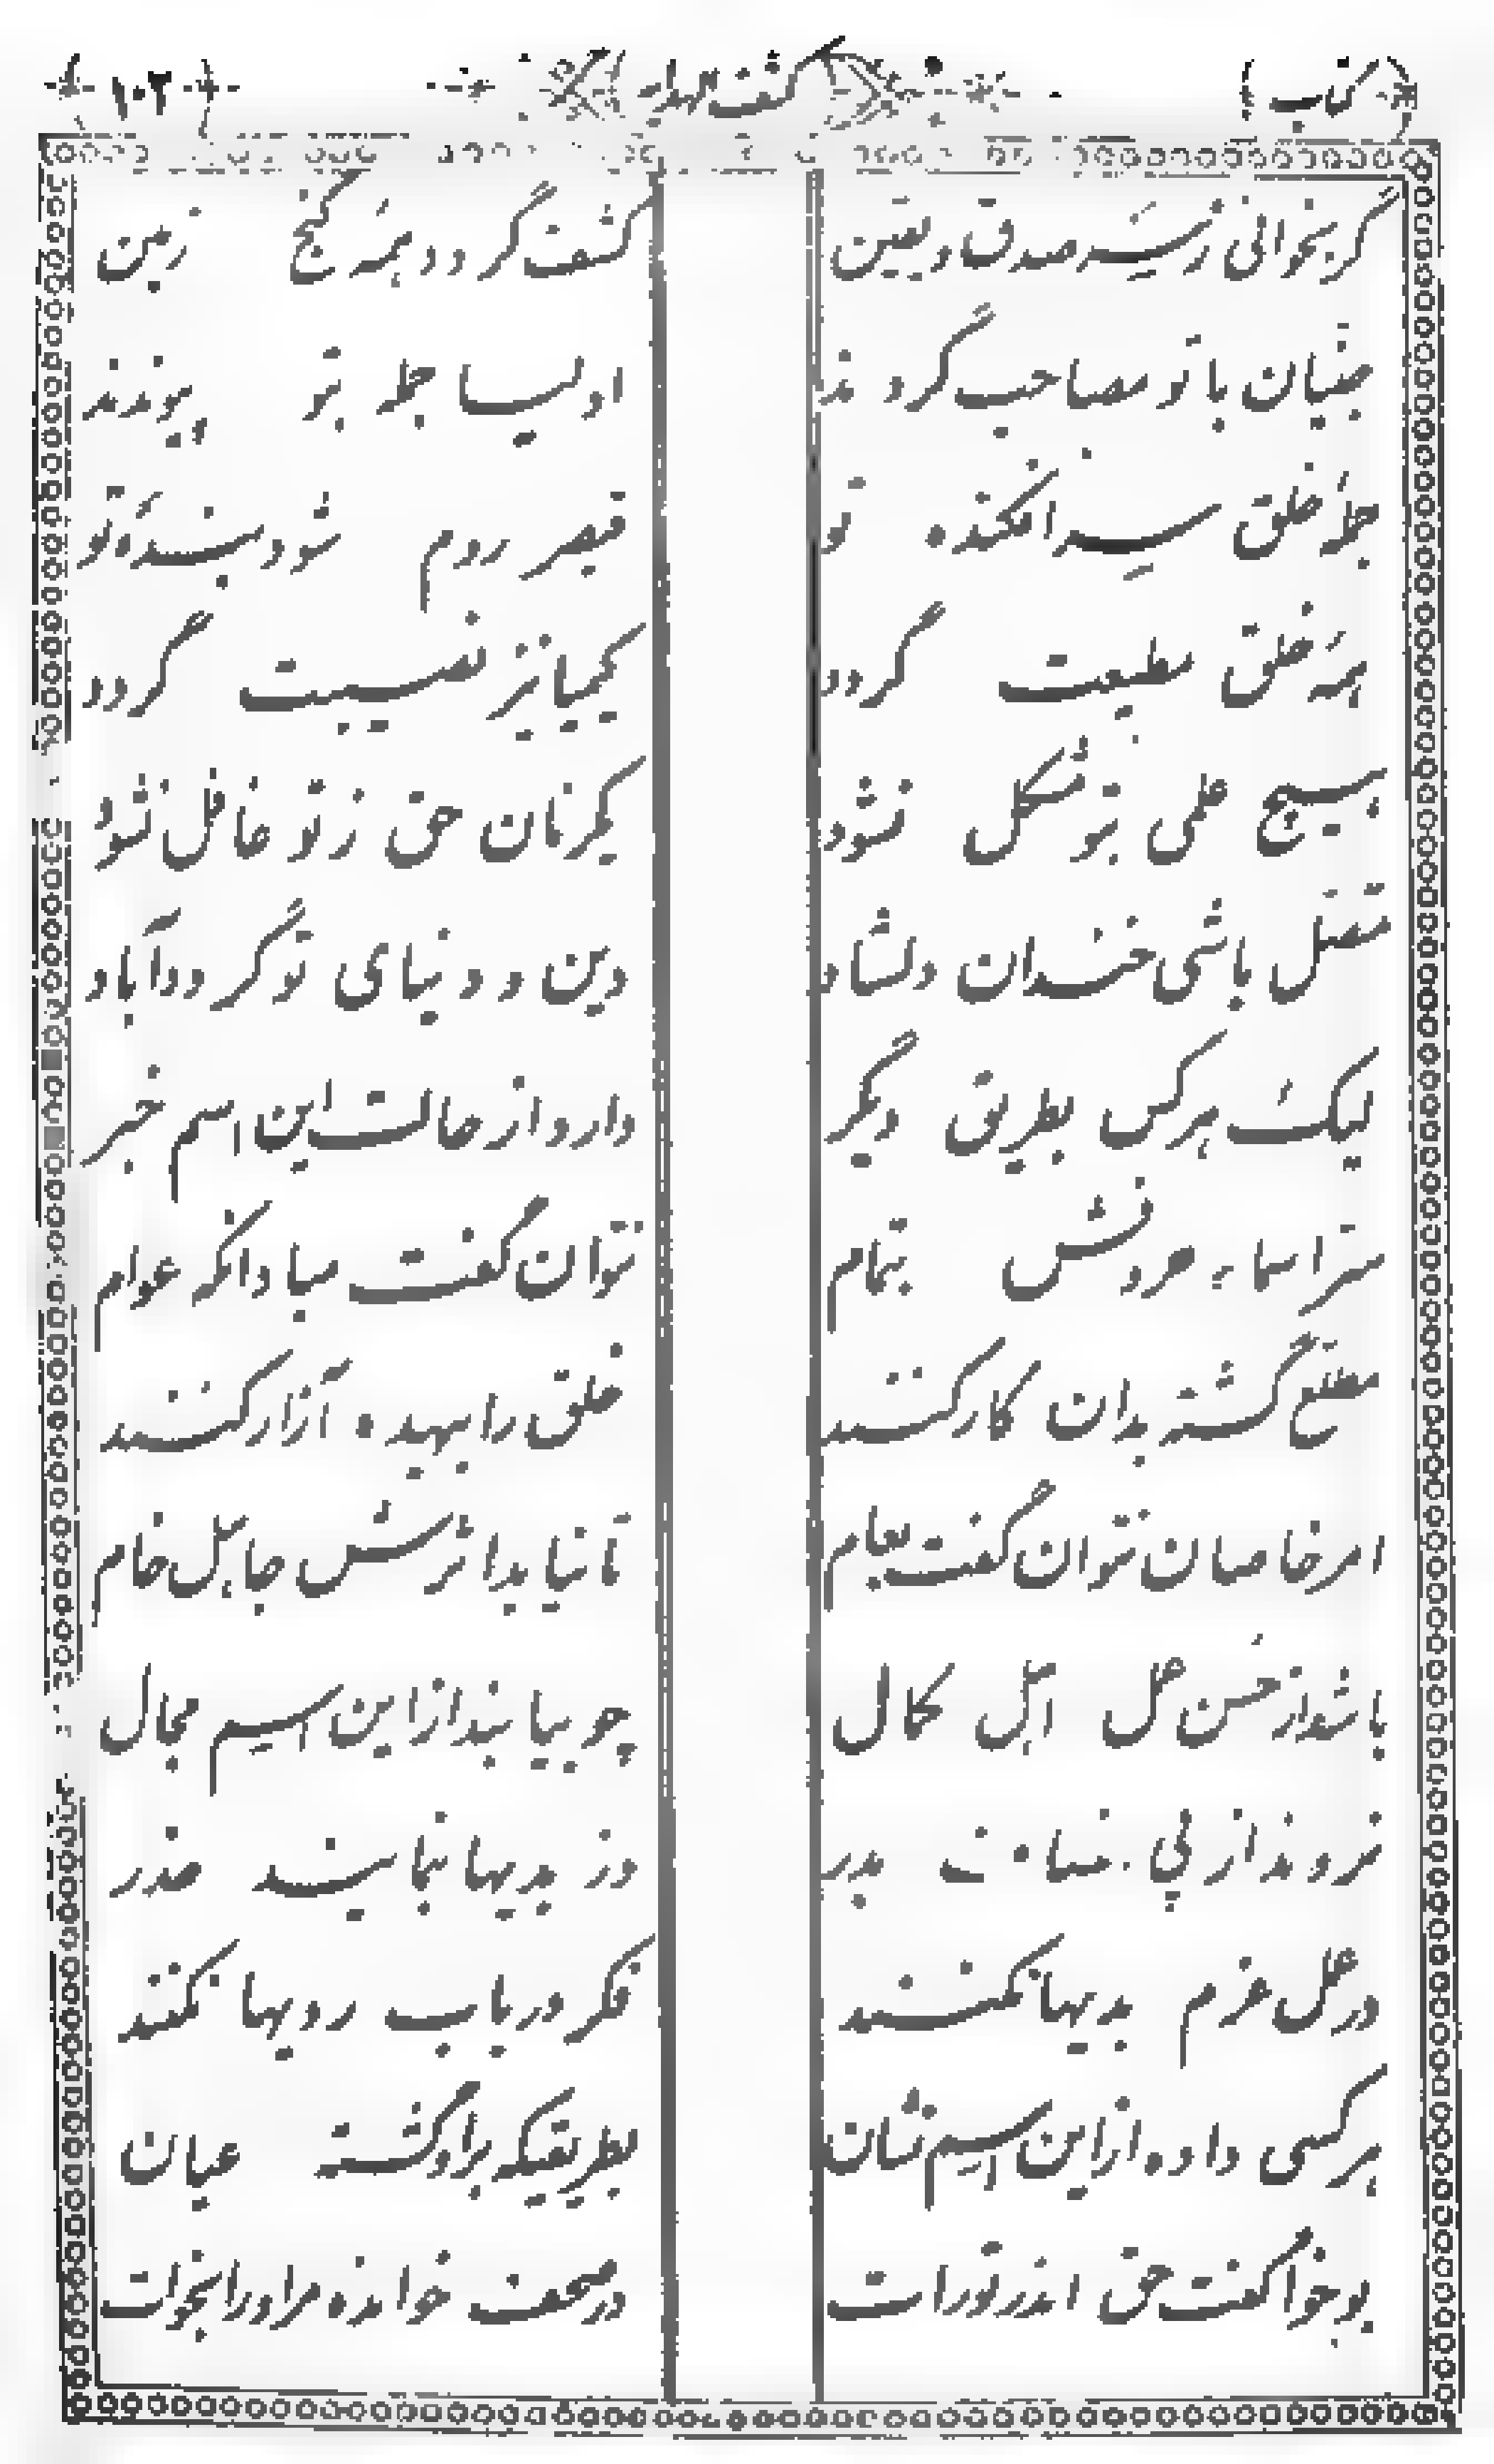 کتاب کشف الهدایه ۱۰۲
گر بخوانی ز سَرِ صدق و یقین کشف گردد همهٔ گنج زمین
جنیان با تو مصاحب گردند اولیا جمله بتو پیوندند
جملهٔ خلق سرافکنده تو قیصر روم شود بندهٔ تو
همهٔ خلق مطیعت گردد کیمیا نیز نصیبت گردد
هیچ علمی بتو مشکل نشود یکزمان حق ز تو غافل نشود
متصل باشی خندان دلشاد دین و دنیای تو گردد آباد
لیک هر کس بطریق دیگر دارد از حالت این اسم خبر
سر اسما حروفش بتمام نتوان گفت مبادا که عوام
مطلع گشته بدان کار کنند خلق را بیهده آزار کنند
امر خاصان نتوان گفت بعام تا نیابد اثرش جاهل خام
باشد از حسن عمل اهل کمال چو بیابند از این اسم مجال
نروند از پی بدر وز بدیها بنمایند حذر
در عمل عزم بدیها نکنند فکر در باب رویها نکنند
هر کسی داده از این اسم نشان بطریقیکه بر او گشته عیان
یوخوا گفت حق اندر تورات در صحف خوانده مر او را بخوات